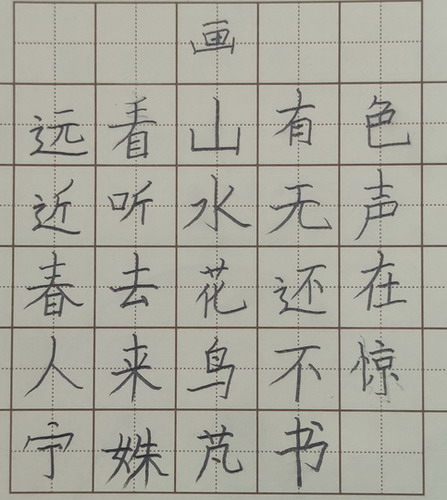 画
远看山有色
近听水无声
春去花还在
人来鸟不惊
宁姝芃书